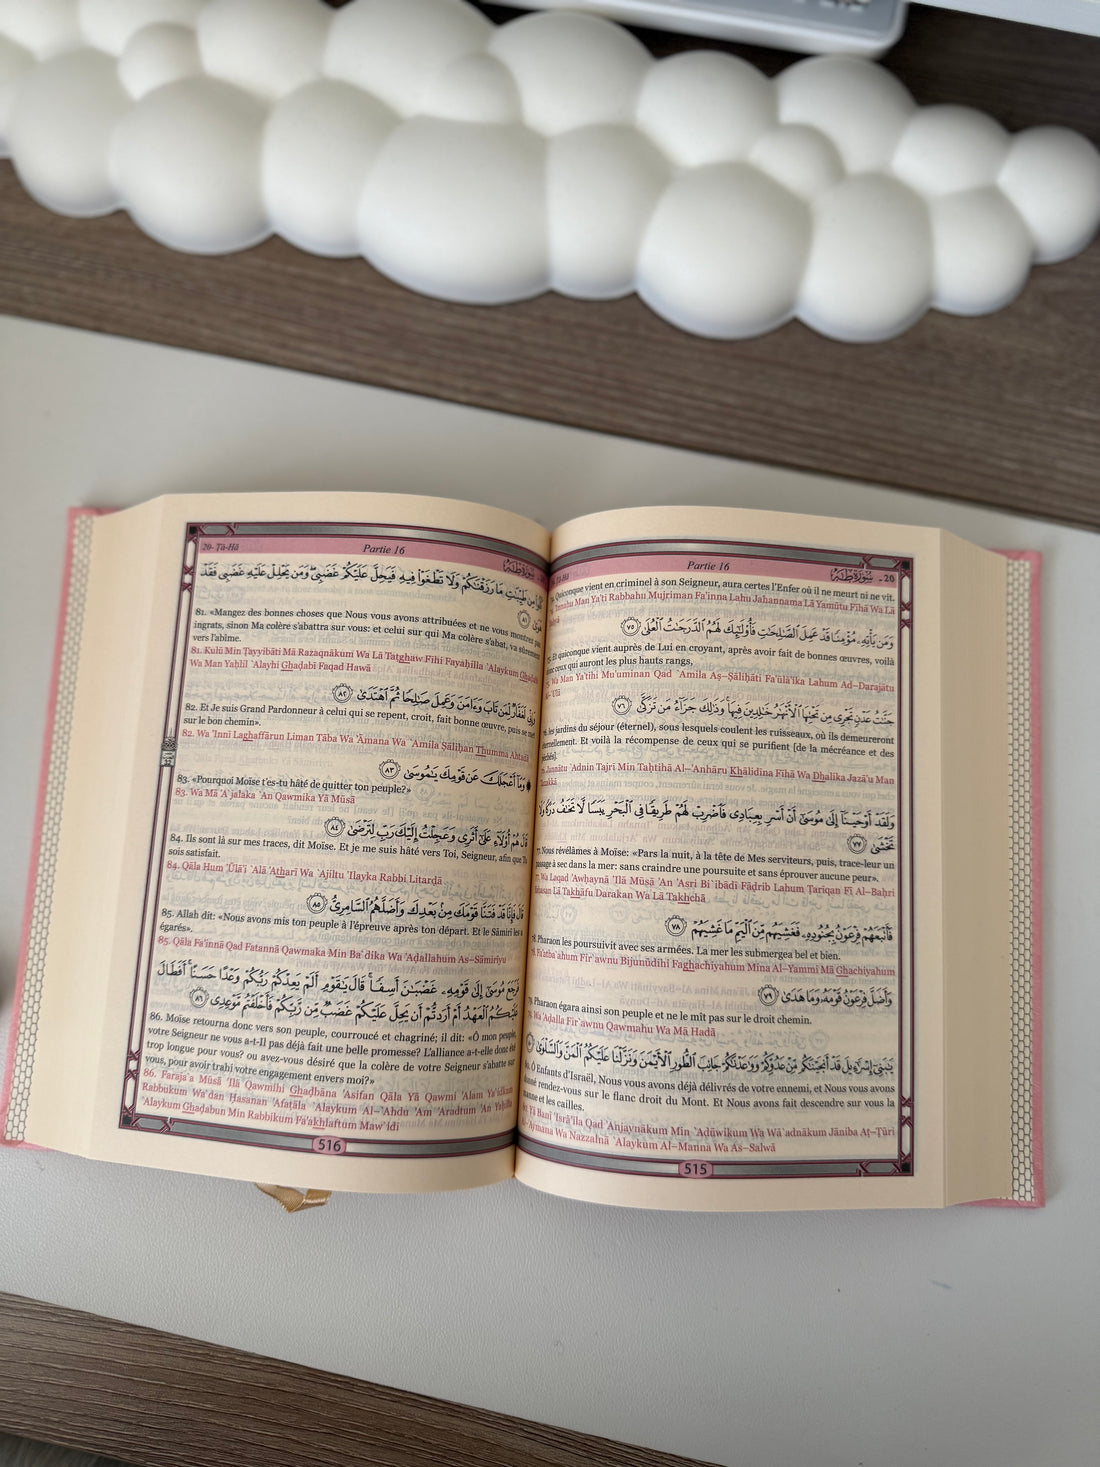 Partie 16
سُورَةُ طٰهٰ - 20
Quiconque vient en criminel à son Seigneur, aura certes l'Enfer où il ne meurt ni ne vit.
Innahu Man Ya'ti Rabbahu Mujriman Fa'inna Lahu Jahannama Lā Yamūtu Fīhā Wa Lā
وَمَن يَأْتِهِۦ مُؤْمِنًا قَدْ عَمِلَ ٱلصَّٰلِحَٰتِ فَأُو۟لَٰٓئِكَ لَهُمُ ٱلدَّرَجَٰتُ ٱلْعُلَىٰ ٧٥
Et quiconque vient auprès de Lui en croyant, après avoir fait de bonnes œuvres, voilà
ceux qui auront les plus hauts rangs,
Wa Man Ya'tihi Mu'uminan Qad `Amila Aṣ–Ṣāliḥāti Fa'ūlā'ika Lahum Ad–Darajātu
جَنَّٰتُ عَدْنٍ تَجْرِى مِن تَحْتِهَا ٱلْأَنْهَٰرُ خَٰلِدِينَ فِيهَا ۚ وَذَٰلِكَ جَزَآءُ مَن تَزَكَّىٰ ٧٦
les jardins du séjour (éternel), sous lesquels coulent les ruisseaux, où ils demeureront
éternellement. Et voilà la récompense de ceux qui se purifient [de la mécréance et des
Jannātu `Adnin Tajrī Min Taḥtihā Al–'Anhāru Khālidīna Fīhā Wa Dhalika Jazā'u Man
وَلَقَدْ أَوْحَيْنَآ إِلَىٰ مُوسَىٰٓ أَنْ أَسْرِ بِعِبَادِى فَٱضْرِبْ لَهُمْ طَرِيقًا فِى ٱلْبَحْرِ يَبَسًا لَّا تَخَٰفُ دَرَكًا وَلَا
تَخْشَىٰ ٧٧
Nous révélâmes à Moïse: «Pars la nuit, à la tête de Mes serviteurs, puis, trace-leur un
passage à sec dans la mer: sans craindre une poursuite et sans éprouver aucune peur».
Wa Laqad 'Awḥaynā 'Ilá Mūsá 'An 'Asri Bi`ibādī Fāḍrib Lahum Ṭarīqan Fī Al–Baḥri
Yabasan Lā Takhāfu Darakan Wa Lā Takhchá
فَأَتْبَعَهُمْ فِرْعَوْنُ بِجُنُودِهِۦ فَغَشِيَهُم مِّنَ ٱلْيَمِّ مَا غَشِيَهُمْ ٧٨
Pharaon les poursuivit avec ses armées. La mer les submergea bel et bien.
Fa'atba`ahum Fir`awnu Bijunūdihi Faghachiyahum Mina Al–Yammi Mā Ghachiyahum
وَأَضَلَّ فِرْعَوْنُ قَوْمَهُۥ وَمَا هَدَىٰ ٧٩
Pharaon égara ainsi son peuple et ne le mit pas sur le droit chemin.
Wa 'Aḍalla Fir`awnu Qawmahu Wa Mā Hadá
يَٰبَنِىٓ إِسْرَٰٓءِيلَ قَدْ أَنجَيْنَٰكُم مِّنْ عَدُوِّكُمْ وَوَٰعَدْنَٰكُمْ جَانِبَ ٱلطُّورِ ٱلْأَيْمَنَ وَنَزَّلْنَا عَلَيْكُمُ ٱلْمَنَّ وَٱلسَّلْوَىٰ
Ô Enfants d'Israël, Nous vous avons déjà délivrés de votre ennemi, et Nous vous avons
donné rendez-vous sur le flanc droit du Mont. Et Nous avons fait descendre sur vous la
manne et les cailles.
Yā Banī 'Isrā'īla Qad 'Anjaynākum Min `Adūwikum Wa Wā`adnākum Jāniba Aṭ–Ṭūri
Al–'Aymana Wa Nazzalnā `Alaykumu Al–Manna Wa As–Salwá
515
20- Ṭā-Hā
Partie 16
سُورَةُ طٰهٰ
كُلُوا۟ مِن طَيِّبَٰتِ مَا رَزَقْنَٰكُمْ وَلَا تَطْغَوْا۟ فِيهِ فَيَحِلَّ عَلَيْكُمْ غَضَبِى ۖ وَمَن يَحْلِلْ عَلَيْهِ غَضَبِى فَقَدْ
هَوَىٰ ٨١
81. «Mangez des bonnes choses que Nous vous avons attribuées et ne vous montrez pas
ingrats, sinon Ma colère s'abattra sur vous: et celui sur qui Ma colère s'abat, va sûrement
vers l'abîme.
81. Kulū Min Ṭayyibāti Mā Razaqnākum Wa Lā Tatghaw Fīhi Fayaḥilla `Alaykum Ghaḍabī
Wa Man Yaḥlil `Alayhi Ghaḍabī Faqad Hawá
وَإِنِّى لَغَفَّارٌ لِّمَن تَابَ وَءَامَنَ وَعَمِلَ صَٰلِحًا ثُمَّ ٱهْتَدَىٰ ٨٢
82. Et Je suis Grand Pardonneur à celui qui se repent, croit, fait bonne œuvre, puis se met
sur le bon chemin».
82. Wa 'Innī Laghaffārun Liman Tāba Wa 'Āmana Wa `Amila Ṣāliḥan Thumma Ahtadá
وَمَآ أَعْجَلَكَ عَن قَوْمِكَ يَٰمُوسَىٰ ٨٣
83. «Pourquoi Moïse t'es-tu hâté de quitter ton peuple?»
83. Wa Mā 'A`jalaka `An Qawmika Yā Mūsá
قَالَ هُمْ أُو۟لَآءِ عَلَىٰٓ أَثَرِى وَعَجِلْتُ إِلَيْكَ رَبِّ لِتَرْضَىٰ ٨٤
84. Ils sont là sur mes traces, dit Moïse. Et je me suis hâté vers Toi, Seigneur, afin que Tu
sois satisfait.
84. Qāla Hum 'Ūlā'i `Alá 'Atharī Wa `Ajiltu 'Ilayka Rabbi Litarḍá
قَالَ فَإِنَّا قَدْ فَتَنَّا قَوْمَكَ مِنۢ بَعْدِكَ وَأَضَلَّهُمُ ٱلسَّامِرِىُّ ٨٥
85. Allah dit: «Nous avons mis ton peuple à l'épreuve après ton départ. Et le Sāmirī les a
égarés».
85. Qāla Fa'innā Qad Fatannā Qawmaka Min Ba`dika Wa 'Aḍallahum As–Sāmirīyu
فَرَجَعَ مُوسَىٰٓ إِلَىٰ قَوْمِهِۦ غَضْبَٰنَ أَسِفًا ۚ قَالَ يَٰقَوْمِ أَلَمْ يَعِدْكُمْ رَبُّكُمْ وَعْدًا حَسَنًا ۚ أَفَطَالَ
عَلَيْكُمُ ٱلْعَهْدُ أَمْ أَرَدتُّمْ أَن يَحِلَّ عَلَيْكُمْ غَضَبٌ مِّن رَّبِّكُمْ فَأَخْلَفْتُم مَّوْعِدِى ٨٦
86. Moïse retourna donc vers son peuple, courroucé et chagriné; il dit: «Ô mon peuple,
votre Seigneur ne vous a-t-Il pas déjà fait une belle promesse? L'alliance a-t-elle donc été
trop longue pour vous? ou avez-vous désiré que la colère de votre Seigneur s'abatte sur
vous, pour avoir trahi votre engagement envers moi?»
86. Faraja`a Mūsá 'Ilá Qawmihi Ghaḍbāna 'Asifan Qāla Yā Qawmi 'Alam Ya`idkum
Rabbukum Wa`dan Ḥasanan 'Afaṭāla `Alaykumu Al–`Ahdu 'Am 'Aradtum 'An Yaḥilla
`Alaykum Ghaḍabun Min Rabbikum Fa'akhlaftum Maw`idī
516